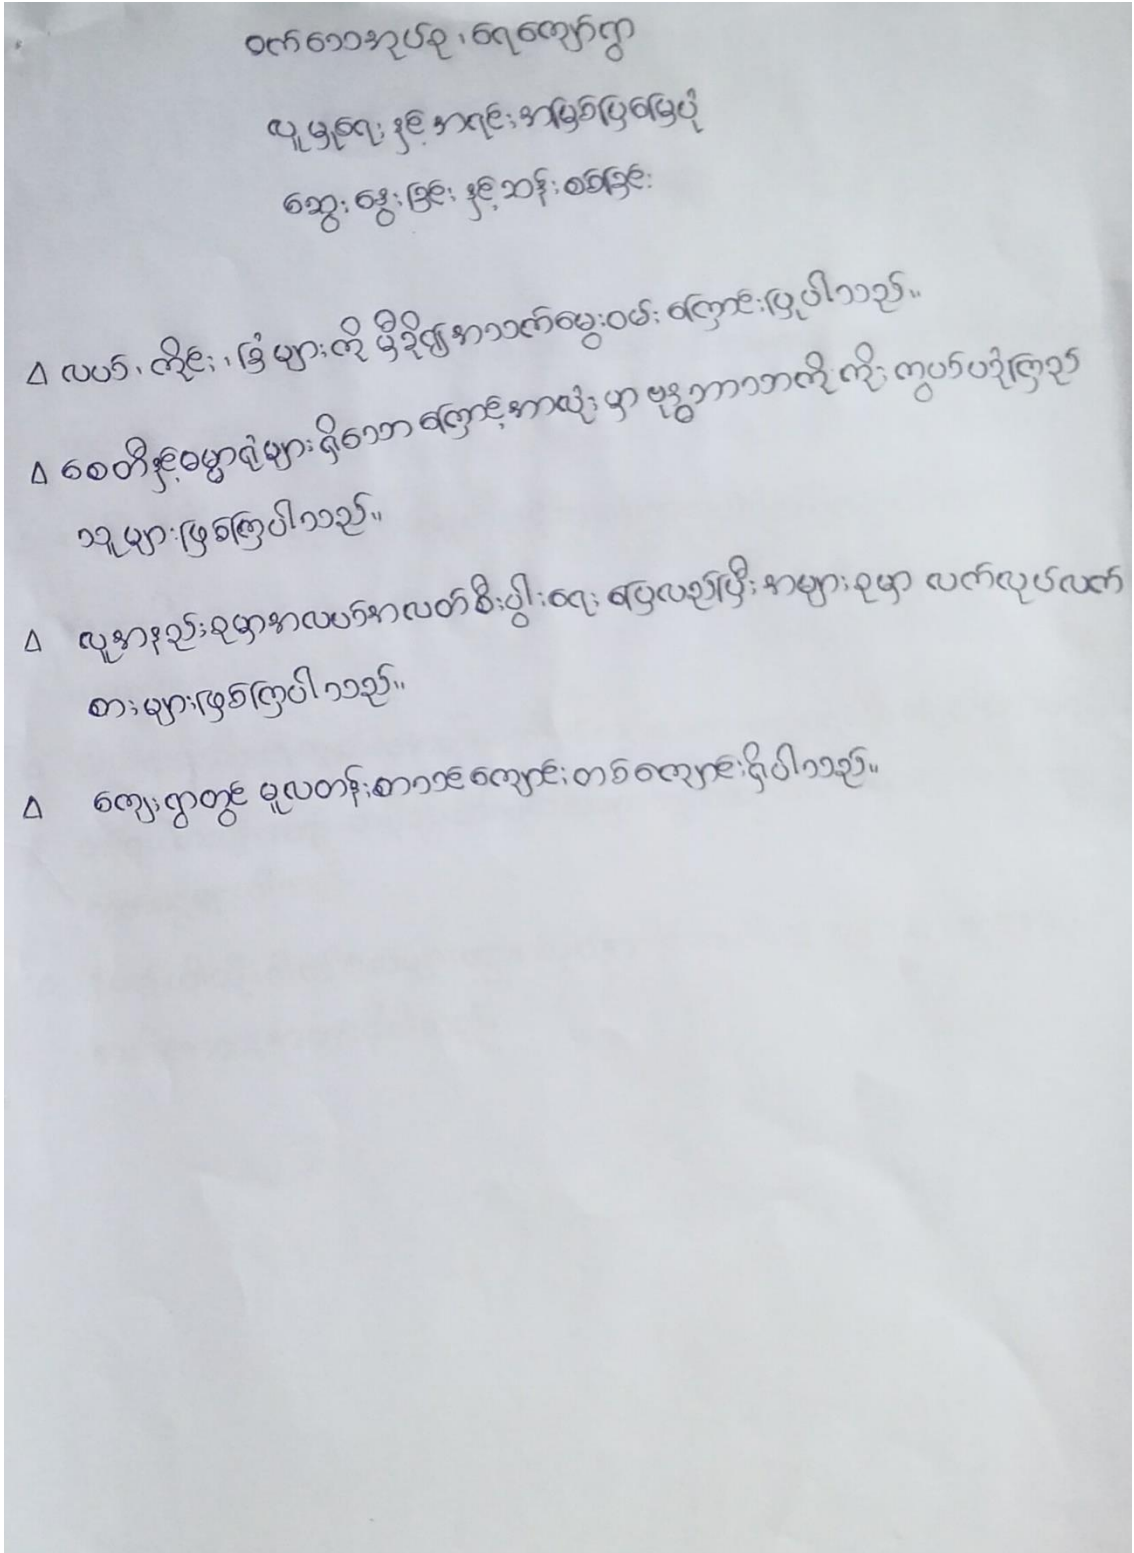 ဝက်သေအုပ်စု၊ ရေကျော်ရွာ
လူမှုရေးနှင့်အရင်းအမြစ်ပြမြေပုံ
ဆွေးနွေးခြင်းနှင့်ဆန်းစစ်ခြင်း
∆ လယ်၊ ကိုင်း၊ ခြံများကို မှီခိုရ၍အသက်မွေးဝမ်းကြောင်းပြုပါသည်။
∆ စေတီနှင့်ဓမ္မာရုံများရှိသောကြောင့်အားလုံးမှာ ဗုဒ္ဓဘာသာကိုကိုးကွယ်ယုံကြည်
သူများဖြစ်ကြပါသည်။
∆ လူအနည်းစုမှာအလယ်အလတ်စီးပွါးရေး ပြေလည်ပြီးအများစုမှာ လက်လုပ်လက်
စားများဖြစ်ကြပါသည်။
∆ ကျေးရွာတွင် မူလတန်းစာသင်ကျောင်းတစ်ကျောင်းရှိပါသည်။